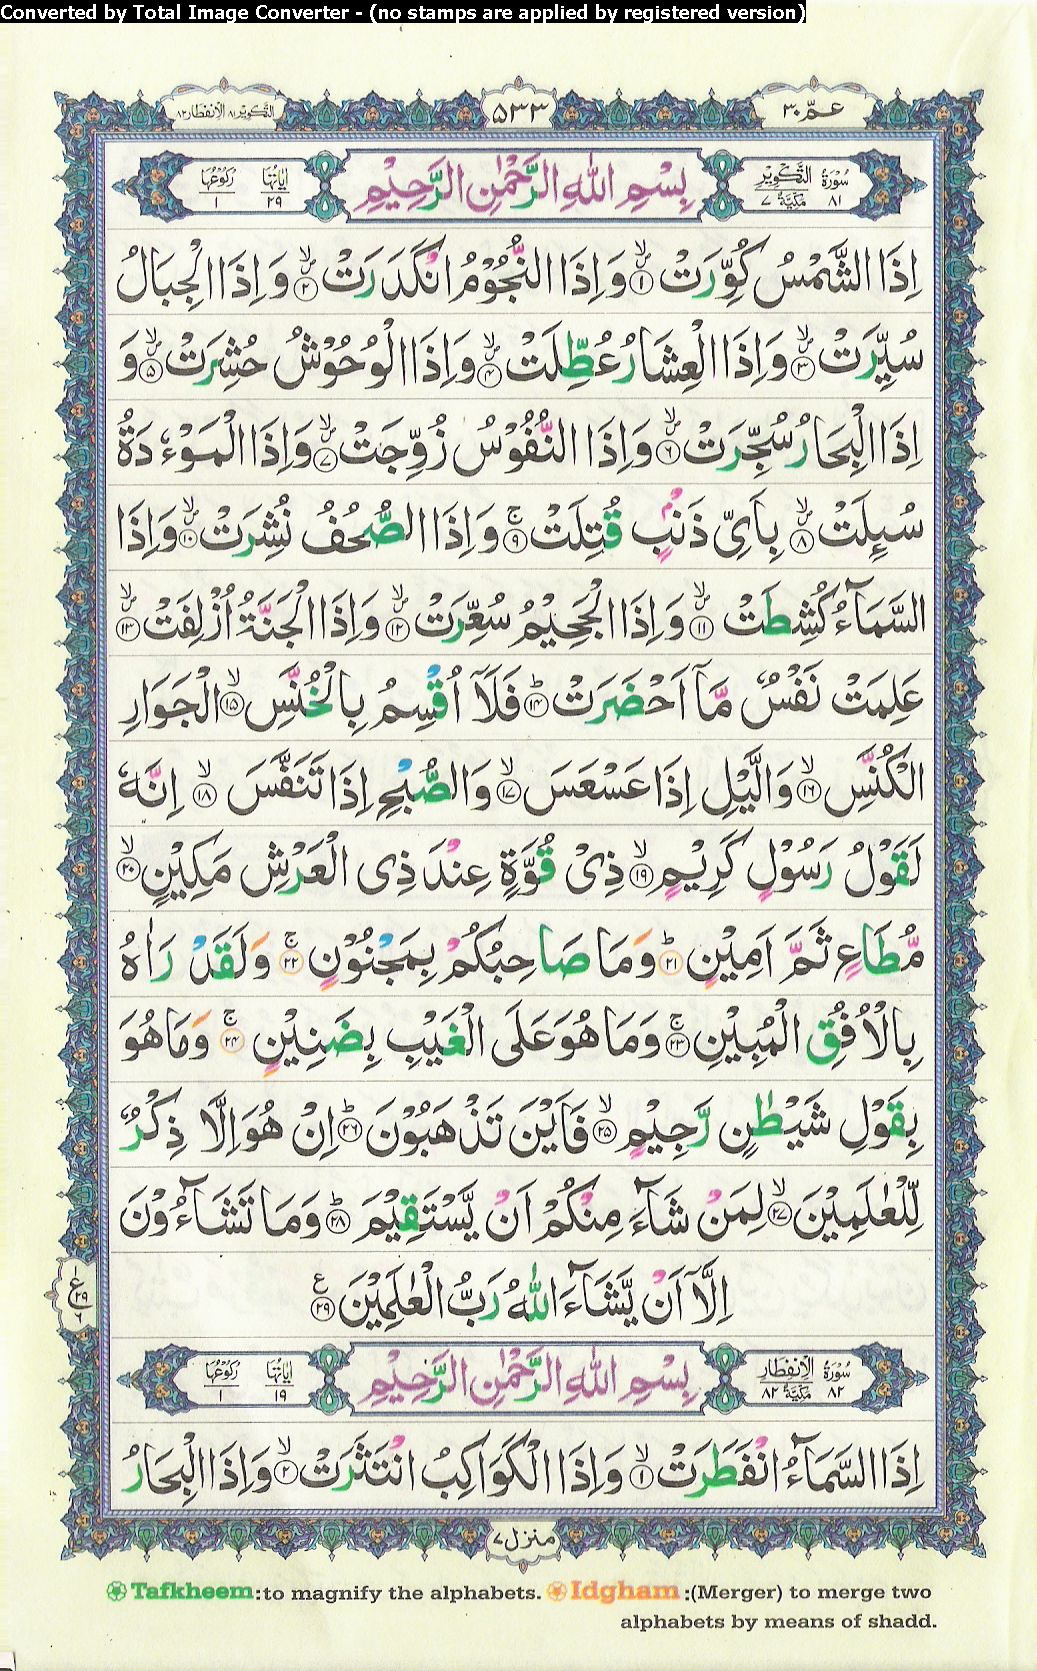 Converted by Total Image Converter - (no stamps are applied by registered version)
عمّ ۳۰
۵۳۳
التكوير ۸۱ الانفطار ۸۲
سُوْرَةُ التَّكْوِيْرِ ۸۱ مَكِّيَّةٌ ۷
بِسْمِ اللّٰهِ الرَّحْمٰنِ الرَّحِيْمِ
اٰيَاتُهَا ۲۹ رُكُوْعُهَا ۱
اِذَا الشَّمْسُ كُوِّرَتْ ۙ‏ ﴿۱﴾ وَاِذَا النُّجُوْمُ انْكَدَرَتْ ۙ‏ ﴿۲﴾ وَاِذَا الْجِبَالُ
سُيِّرَتْ ۙ‏ ﴿۳﴾ وَاِذَا الْعِشَارُ عُطِّلَتْ ۙ‏ ﴿۴﴾ وَاِذَا الْوُحُوْشُ حُشِرَتْ ۙ‏ ﴿۵﴾ وَ
اِذَا الْبِحَارُ سُجِّرَتْ ۙ‏ ﴿۶﴾ وَاِذَا النُّفُوْسُ زُوِّجَتْ ۙ‏ ﴿۷﴾ وَاِذَا الْمَوْءٗدَةُ
سُىِٕلَتْ ۙ‏ ﴿۸﴾ بِاَىِّ ذَنْۢبٍ قُتِلَتْ ۚ‏ ﴿۹﴾ وَاِذَا الصُّحُفُ نُشِرَتْ ۙ‏ ﴿۱۰﴾ وَاِذَا
السَّمَآءُ كُشِطَتْ ۙ‏ ﴿۱۱﴾ وَاِذَا الْجَحِيْمُ سُعِّرَتْ ۙ‏ ﴿۱۲﴾ وَاِذَا الْجَنَّةُ اُزْلِفَتْ ۙ‏ ﴿۱۳﴾
عَلِمَتْ نَفْسٌ مَّاۤ اَحْضَرَتْ ؕ‏ ﴿۱۴﴾ فَلَاۤ اُقْسِمُ بِالْخُنَّسِ ۙ‏ ﴿۱۵﴾ الْجَوَارِ
الْكُنَّسِ ۙ‏ ﴿۱۶﴾ وَالَّيْلِ اِذَا عَسْعَسَ ۙ‏ ﴿۱۷﴾ وَالصُّبْحِ اِذَا تَنَفَّسَ ۙ‏ ﴿۱۸﴾ اِنَّهٗ
لَقَوْلُ رَسُوْلٍ كَرِيْمٍ ۙ‏ ﴿۱۹﴾ ذِىْ قُوَّةٍ عِنْدَ ذِى الْعَرْشِ مَكِيْنٍ ۙ‏ ﴿۲۰﴾
مُّطَاعٍ ثَمَّ اَمِيْنٍ ؕ‏ ﴿۲۱﴾ وَمَا صَاحِبُكُمْ بِمَجْنُوْنٍ ۚ‏ ﴿۲۲﴾ وَلَقَدْ رَاٰهُ
بِالْاُفُقِ الْمُبِيْنِ ۚ‏ ﴿۲۳﴾ وَمَا هُوَ عَلَى الْغَيْبِ بِضَنِيْنٍ ۚ‏ ﴿۲۴﴾ وَمَا هُوَ
بِقَوْلِ شَيْطٰنٍ رَّجِيْمٍ ۙ‏ ﴿۲۵﴾ فَاَيْنَ تَذْهَبُوْنَ ؕ‏ ﴿۲۶﴾ اِنْ هُوَ اِلَّا ذِكْرٌ
لِّلْعٰلَمِيْنَ ۙ‏ ﴿۲۷﴾ لِمَنْ شَآءَ مِنْكُمْ اَنْ يَّسْتَقِيْمَ ؕ‏ ﴿۲۸﴾ وَمَا تَشَآءُوْنَ
اِلَّاۤ اَنْ يَّشَآءَ اللّٰهُ رَبُّ الْعٰلَمِيْنَ ﴿۲۹﴾ ع
۱ ع ۲۹ ۶
سُوْرَةُ الْاِنْفِطَارِ ۸۲ مَكِّيَّةٌ ۸۲
بِسْمِ اللّٰهِ الرَّحْمٰنِ الرَّحِيْمِ
اٰيَاتُهَا ۱۹ رُكُوْعُهَا ۱
اِذَا السَّمَآءُ انْفَطَرَتْ ۙ‏ ﴿۱﴾ وَاِذَا الْكَوَاكِبُ انْتَثَرَتْ ۙ‏ ﴿۲﴾ وَاِذَا الْبِحَارُ
منزل ۷
Tafkheem:to magnify the alphabets. Idgham :(Merger) to merge two
alphabets by means of shadd.